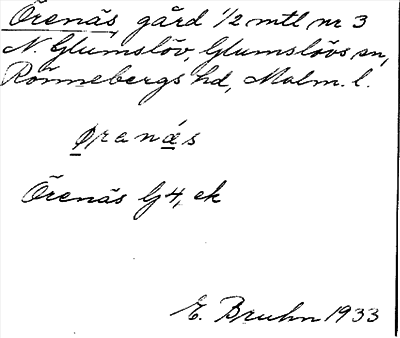 Örenäs, gård 1/2 mtl nr 3
N. Glumslöv, Glumslövs sn,
Rönnebergs hd, Malm. l.
ø̱rená̱s
Örenäs G4, ek
E. Bruhn 1933